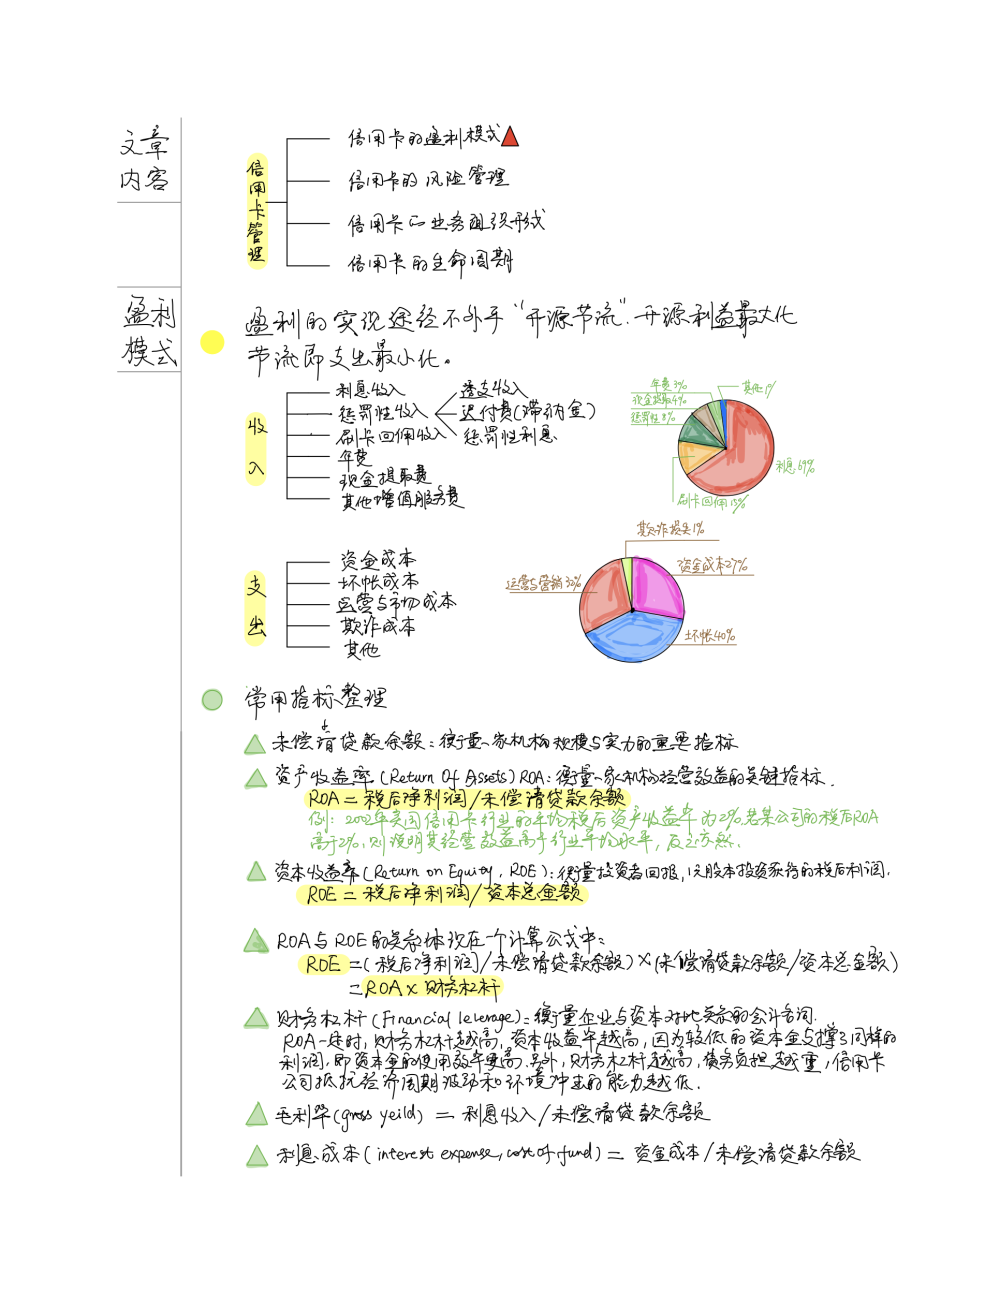 文章
内容
信用卡管理
信用卡的盈利模式
信用卡的风险管理
信用卡的业务组织形式
信用卡的生命周期
盈利
模式
盈利的实现途径不外乎“开源节流”.开源利益最大化
节流即支出最小化。
收入
利息收入
惩罚性收入
透支收入
迟付费(滞纳金)
惩罚性利息
刷卡回佣收入
年费
现金提取费
其他增值服务费
年费3%
现金提取4%
惩罚性8%
其他1%
利息69%
刷卡回佣15%
支出
资金成本
坏帐成本
运营与市场成本
欺诈成本
其他
欺诈损失1%
资金成本27%
运营与营销32%
坏帐40%
常用指标整理
未偿清贷款余额:衡量一家机构规模与实力的重要指标
资产收益率(Return Of Assets)ROA:衡量一家机构经营效益的关键指标.
ROA=税后净利润/未偿清贷款余额
例:2002年美国信用卡行业的平均税后资产收益率为2%.若某公司的税后ROA
高于2%,则说明其经营效益高于行业平均水平,反之亦然.
资本收益率(Return on Equity,ROE):衡量投资者回报,以股本投资获得的税后利润.
ROE=税后净利润/资本总金额
ROA与ROE的关系体现在一个计算公式中:
ROE=(税后净利润/未偿清贷款余额)×(未偿清贷款余额/资本总金额)
=ROA×财务杠杆
财务杠杆(Financial leverage):衡量企业与资本对比关系的会计名词.
ROA一定时,财务杠杆越高,资本收益率越高,因为较低的资本金支撑了同样的
利润,即资本金的使用效率更高.另外,财务杠杆越高,债务负担越重,信用卡
公司抵抗经济周期波动和环境冲击的能力越低.
毛利率(gross yeild)=利息收入/未偿清贷款余额
利息成本(interest expense,cost of fund)=资金成本/未偿清贷款余额